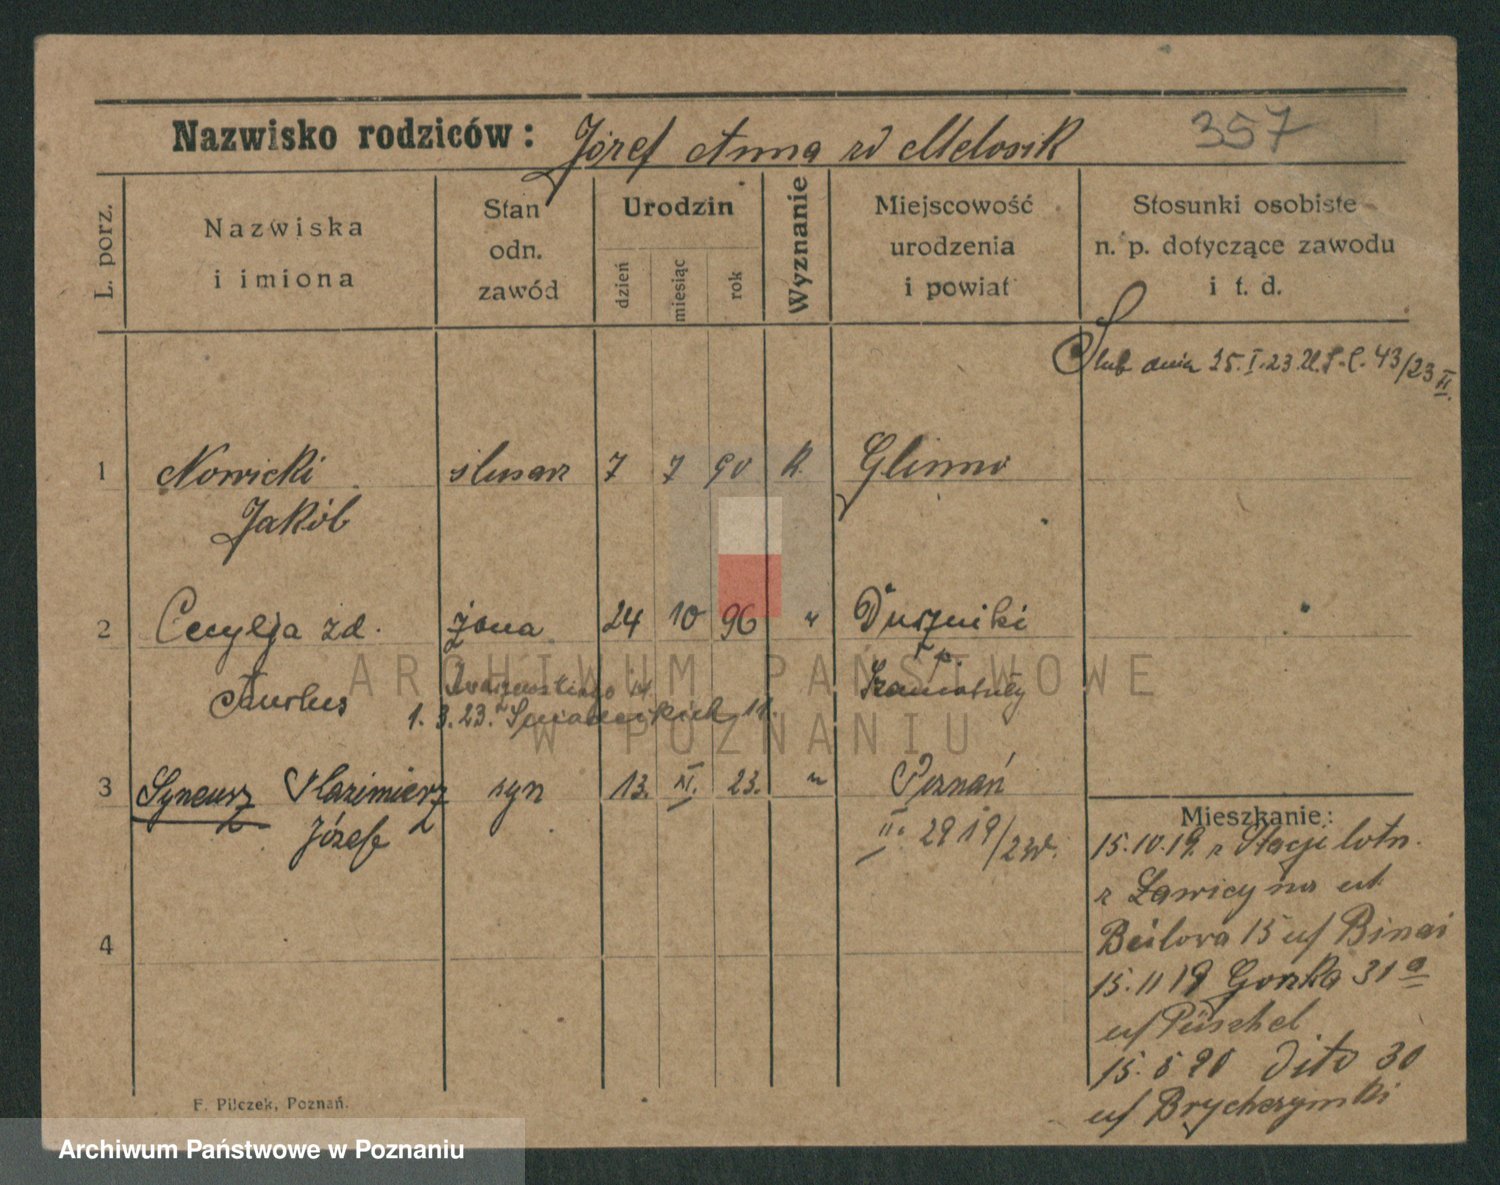 Nazwisko rodziców: Józef Anna zd Melosik 357
L. porz.
Nazwiska
i imiona
Stan
odn.
zawód
Urodzin
dzień
miesiąc
rok
Wyznanie
Miejscowość
urodzenia
i powiat
Stosunki osobiste
n. p. dotyczące zawodu
i t. d.
Ślub dnia 25.I.23 U.S.C. 43/23 II.
1 Nowicki ślusarz 7 7 90 k. Glinno
Jakób
2 Cecylja zd. żona 24 10 96 " Duszniki
p. Szamotuły
1.3.23. Śniadeckich 11.
3 Kazimierz syn 13. XI. 23. " Poznań
Józef
II. 2919/23
4
Mieszkanie:
15.10.19. z Stacji lotn.
z Ławicy na ul.
15
15.11 19 Górka 31 a
15.5 20 dito 30
F. Pilczek, Poznań.
ARCHIWUM PAŃSTWOWE
W POZNANIU
Archiwum Państwowe w Poznaniu